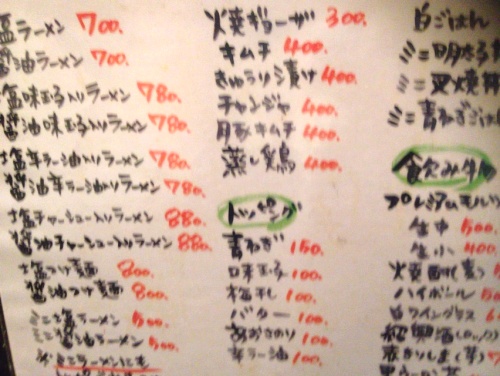 塩ラーメン 700.
醤油ラーメン 700.
塩味玉子入りラーメン 780.
醤油味玉子入りラーメン 780.
塩辛ラー油入りラーメン 780.
醤油辛ラー油入りラーメン 780.
塩チャーシュー入りラーメン 880.
醤油チャーシュー入りラーメン 880.
塩つけ麺 800.
醤油つけ麺 800.
ミニ塩ラーメン 500.
ミニ醤油ラーメン 500.
ミニラーメンにも
焼ギョーザ 300.
キムチ 400.
きゅうり漬け 400.
チャンジャ 400.
豚キムチ 400.
蒸し鶏 400.
トッピング
青ねぎ 150.
味玉子 100.
梅干し 100.
バター 100.
あおさのり 100.
辛ラー油 100.
白ごはん
ミニ明太子
ミニ叉焼
ミニ青ねぎごは
飲み物
プレミアムモルツ
生中 500.
生小 400.
焼酎
ハイボール
白ワイングラス
紹興酒
赤きりしま(芋)